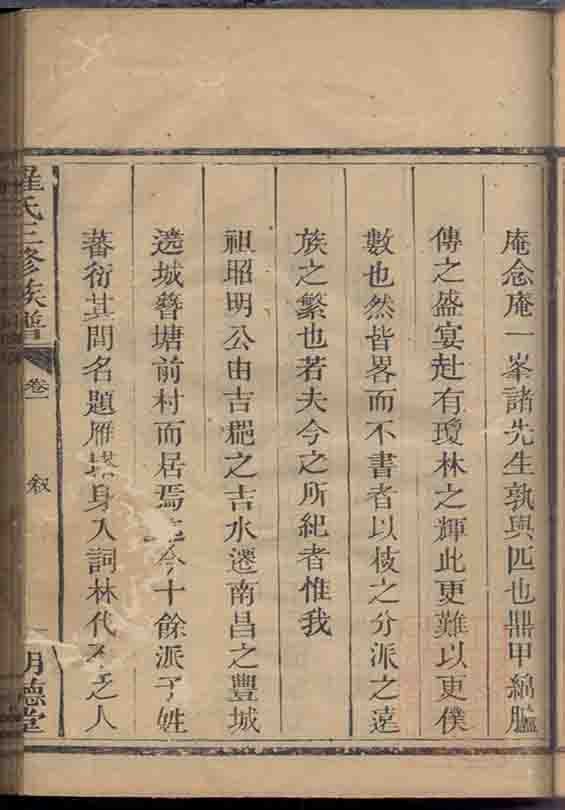 庵念庵一峯諸先生孰與匹也鼎甲綿臚
傳之盛宴赴有瓊林之輝此更難以更僕
數也然皆畧而不書者以枝之分派之遠
族之繁也若夫今之所紀者惟我
祖昭明公由吉郡之吉水遷南昌之豐城
遶城磐塘前村而居焉今十餘派子姓
蕃衍其間名題雁塔身入詞林代不乏人
羅氏三修族譜
卷一
叙
明德堂